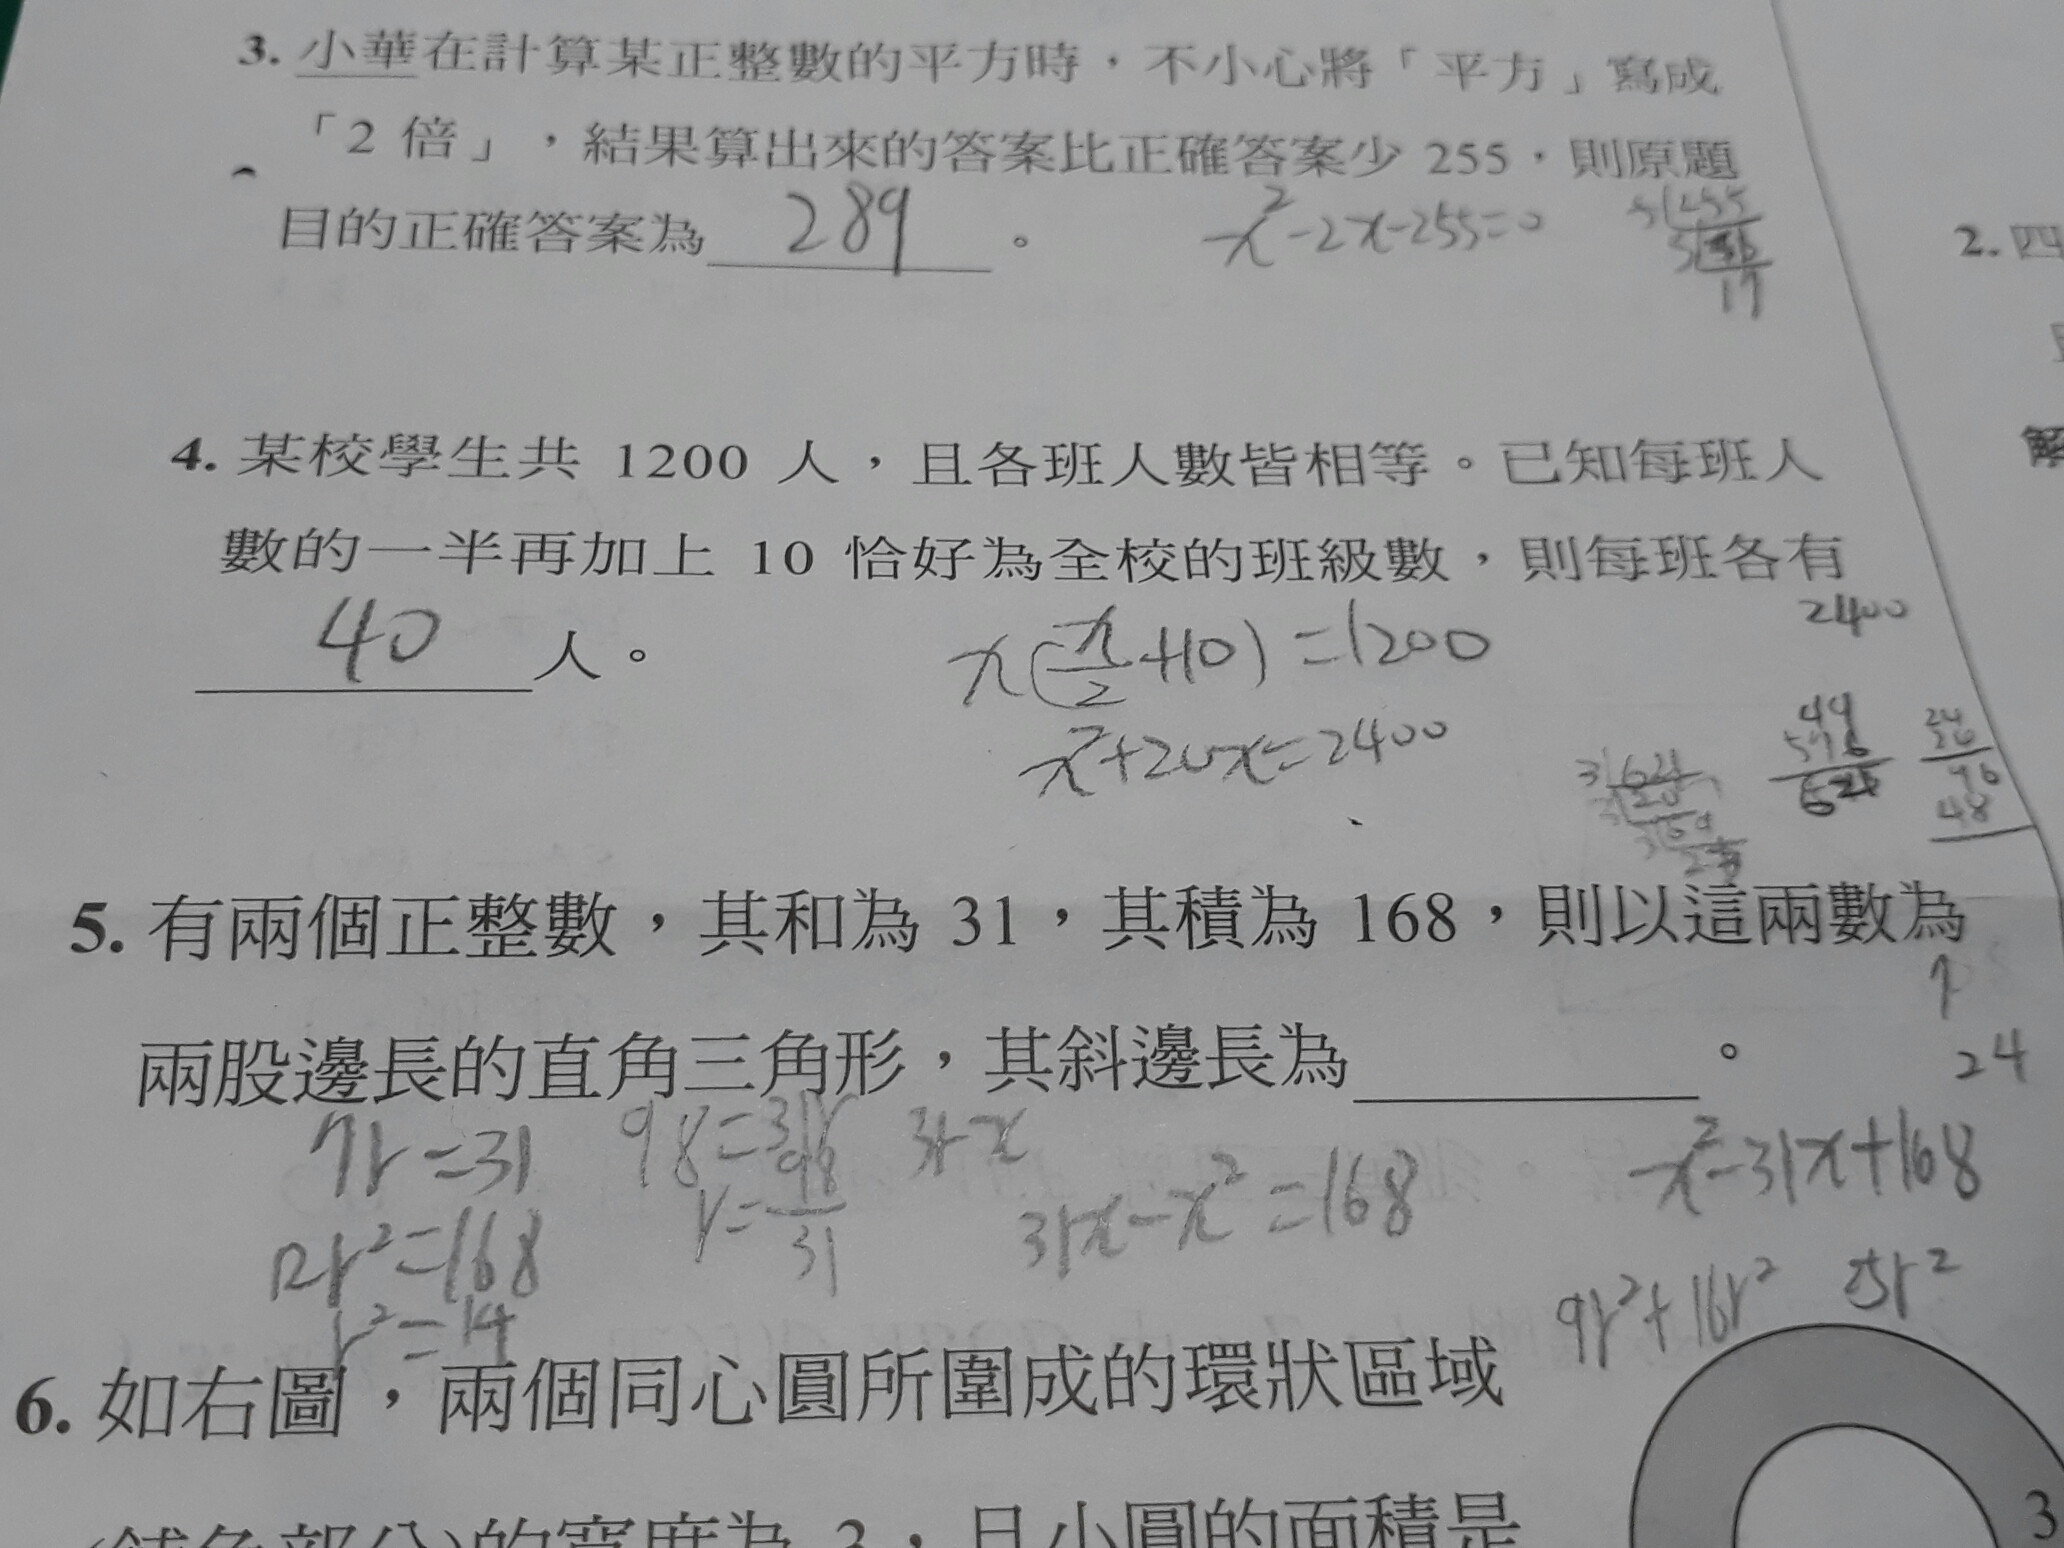 3. 小華在計算某正整數的平方時，不小心將「平方」寫成
「2 倍」，結果算出來的答案比正確答案少 255，則原題
目的正確答案為 289 。
x²-2x-255=0
5 255
17
2. 四
4. 某校學生共 1200 人，且各班人數皆相等。已知每班人
數的一半再加上 10 恰好為全校的班級數，則每班各有
40 人。
2400
x(x/2+10)=1200
x²+20x=2400
解
24
48
5. 有兩個正整數，其和為 31，其積為 168，則以這兩數為
兩股邊長的直角三角形，其斜邊長為 。
7
24
7r=31
98=31r
31-x
12r²=168
r=98/31
31x-x²=168
x²-31x+168
r²=14
9r²+16r² 25r²
6. 如右圖，兩個同心圓所圍成的環狀區域
(鋪色部分)的寬度為 3，且小圓的面積是
3